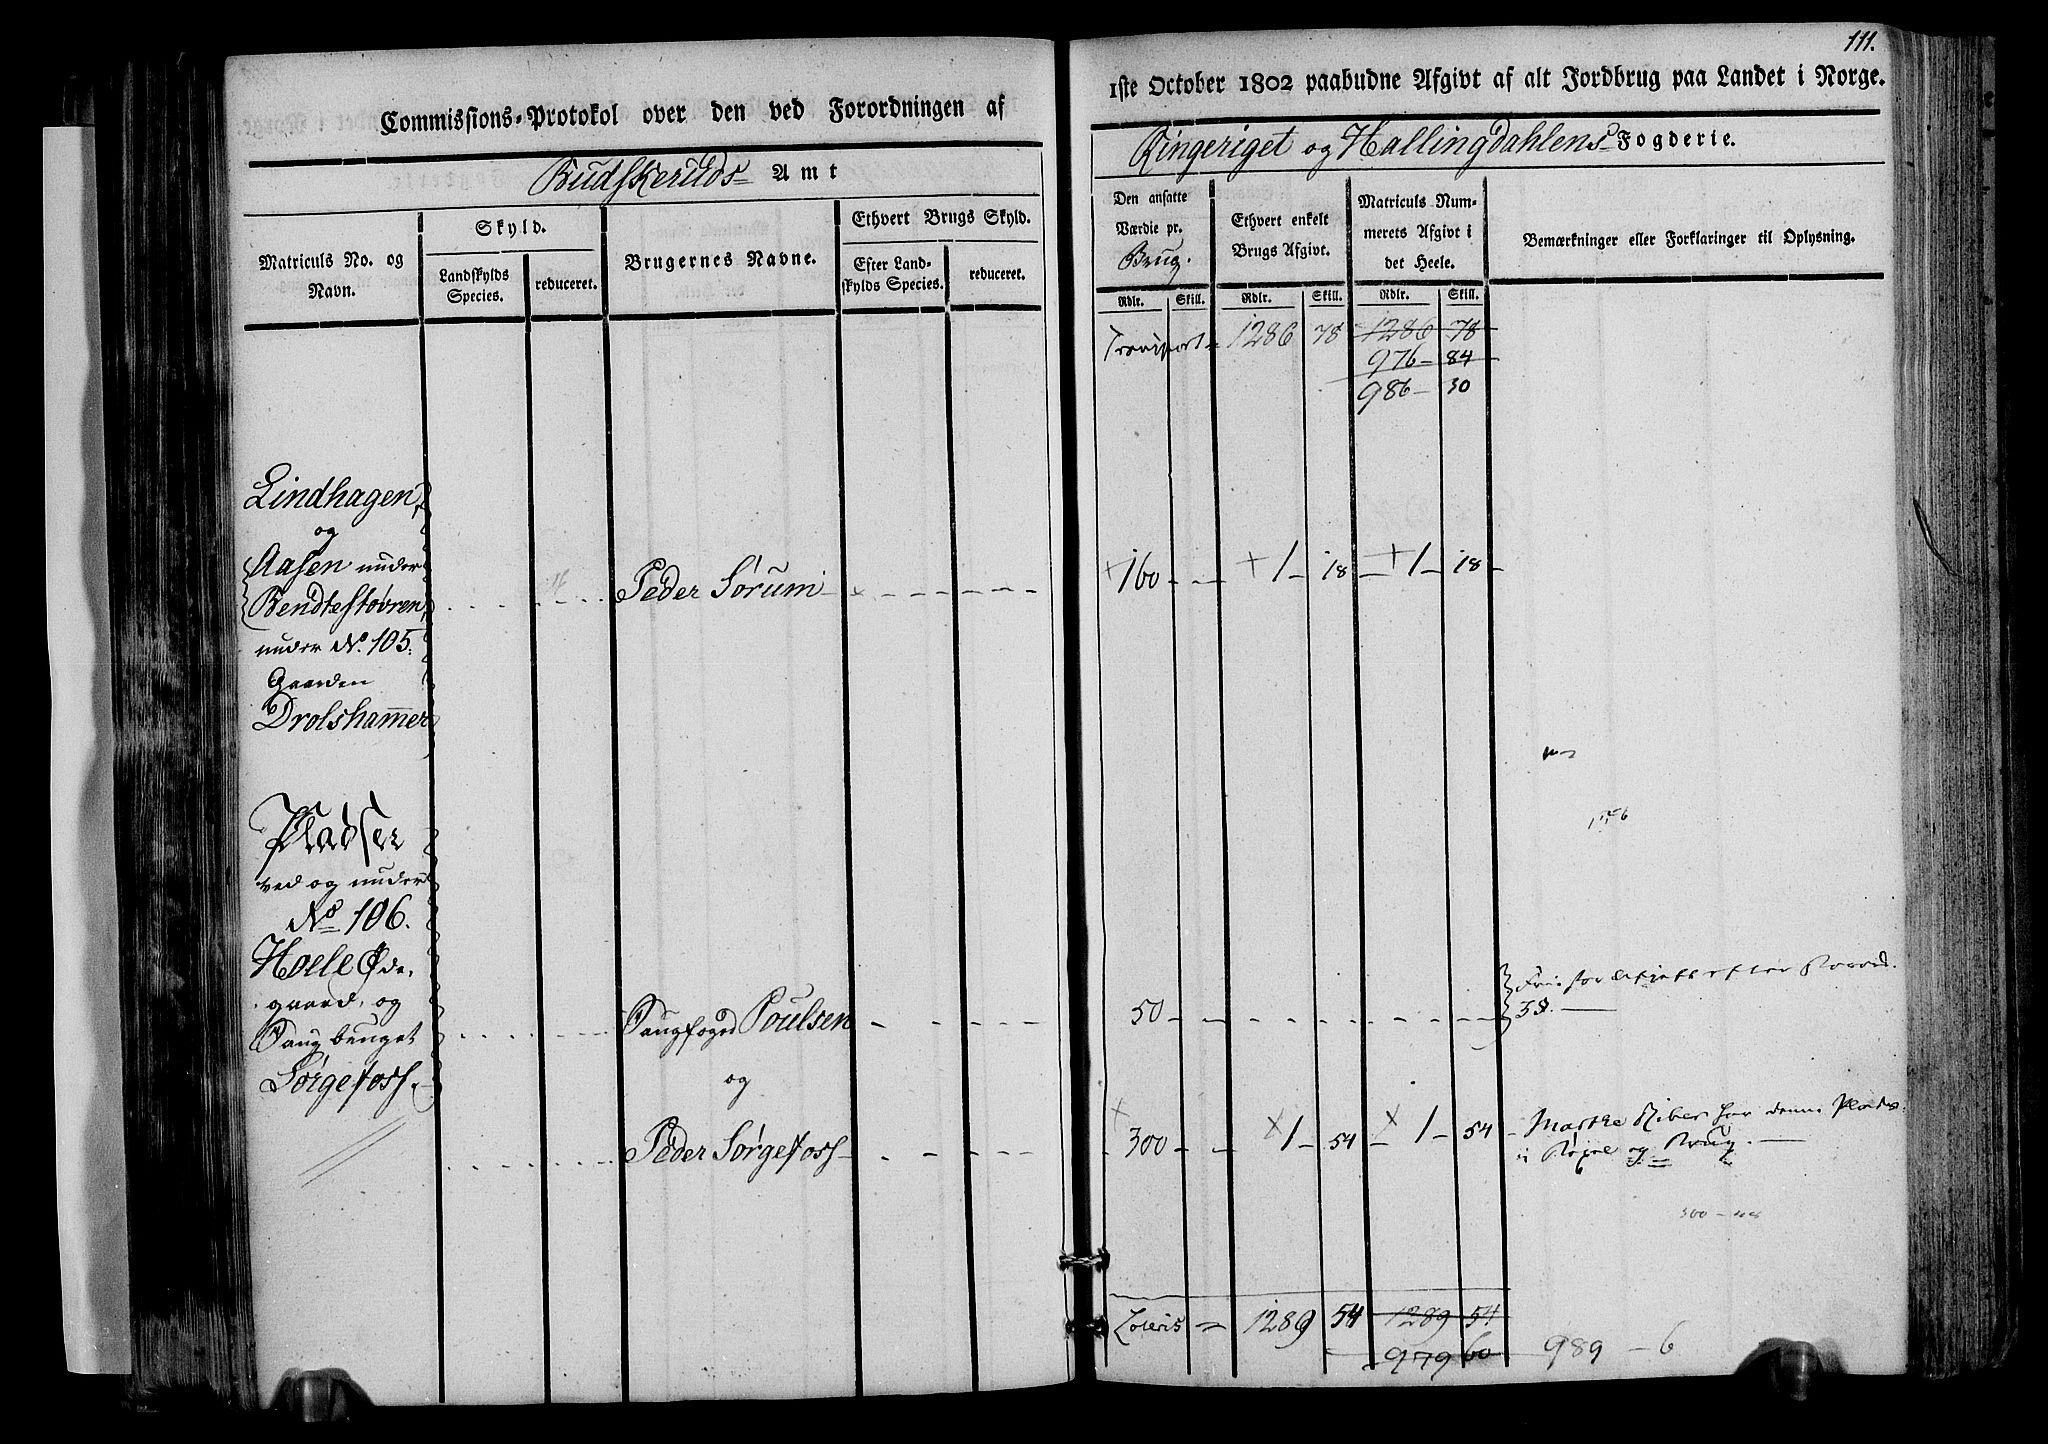 Commissions-Protokol over den ved Forordningen af
Budskeruds Amt
Matriculs No. og Navn.
Skyld.
Landskylds Species.
reduceret.
Brugernes Navne.
Ethvert Brugs Skyld.
Efter Landskylds Species.
reduceret.
Lindhagen,
og
Aasen under
Bendtestøvren,
under No. 105.
Gaarden
Drolshammer
Peder Sørum
Pladser
ved og under
No 106.
Hoele Øde,
gaard, og
Saugbruget
Sørgefoss.
Saugfoged Poulsen
og
Peder Sørgefoss
111.
1ste October 1802 paabudne Afgivt af alt Jordbrug paa Landet i Norge.
Ringeriget og Hallingdahlens Fogderie.
Den ansatte Værdie pr. Brug.
Ethvert enkelt Brugs Afgivt.
Matriculs Nummerets Afgivt i det Heele.
Bemærkninger eller Forklaringer til Oplysning.
Rdlr. Skill. Rdlr. Skill. Rdlr. Skill.
Transport 1286 78 1286 78
976 84
986 30
160 1 18 1 18
50 Fri for Afgift efter
300 1 54 1 54 Marthe Riber har denne Plads
i og Brug.
300
Lateris 1289 54 1289 54
979 60 989 6